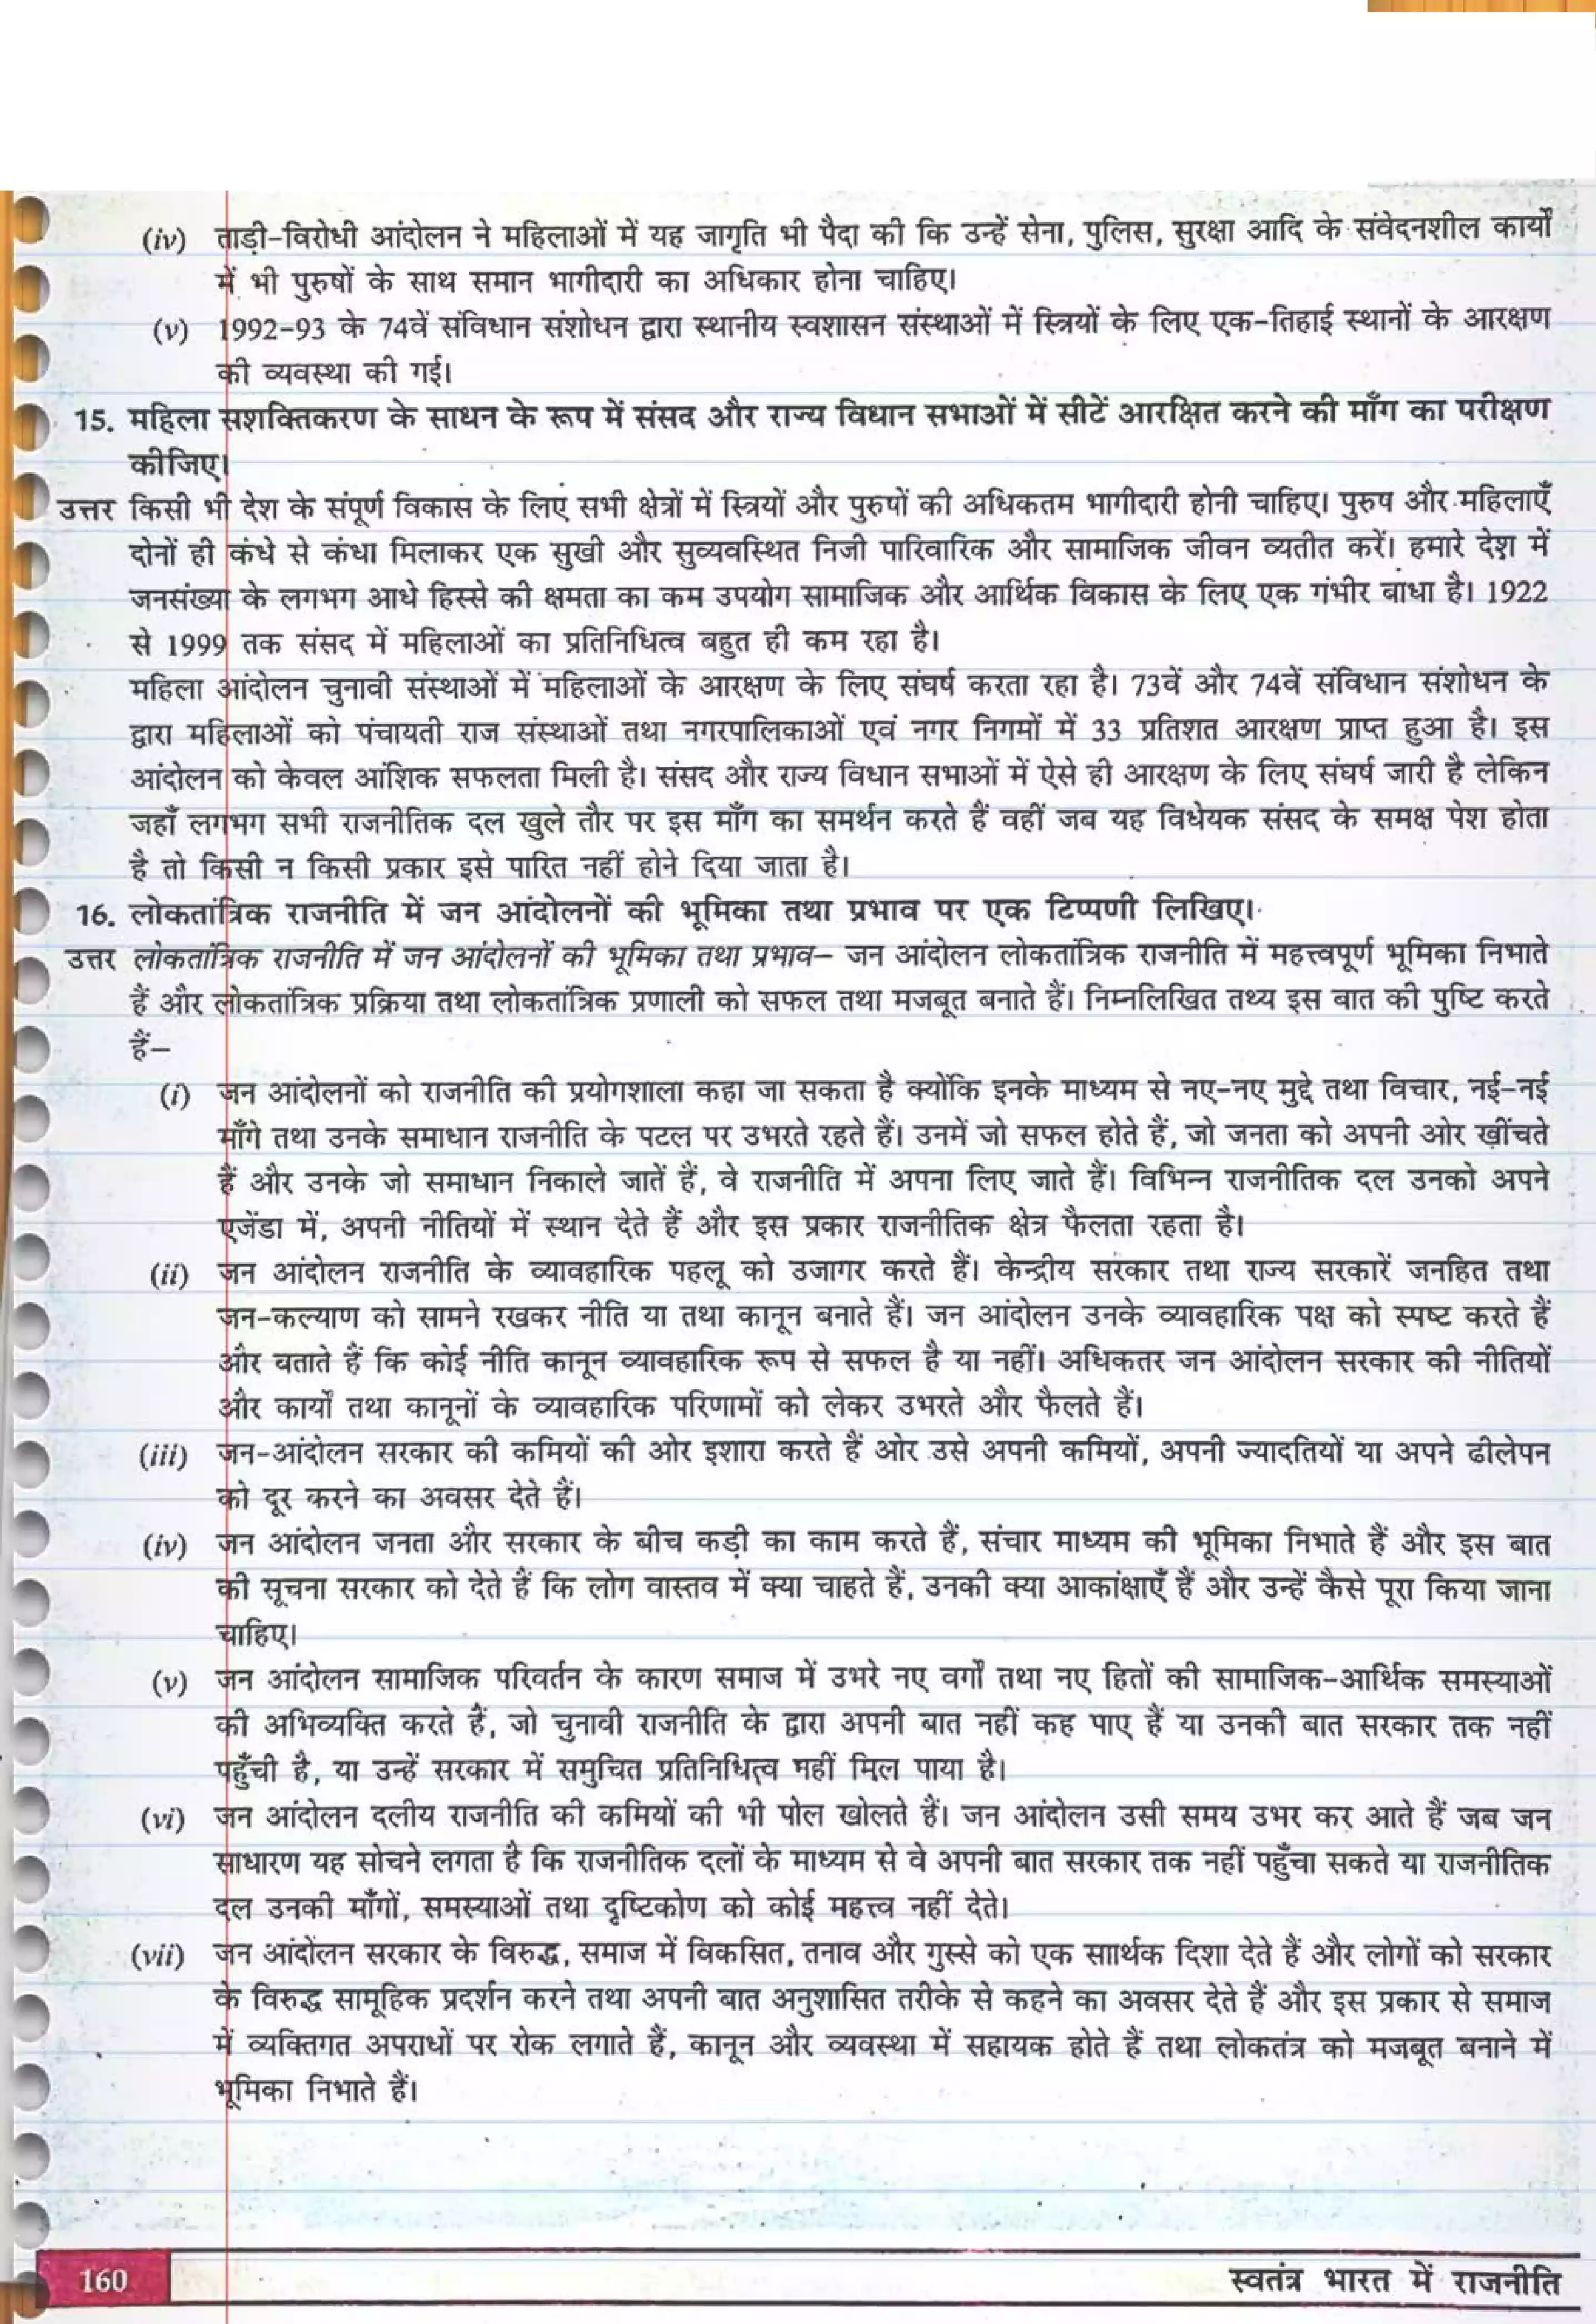 (iv) ताड़ी-विरोधी आंदोलन ने महिलाओं में यह जागृति भी पैदा की कि उन्हें सेना, पुलिस, सुरक्षा आदि के संवेदनशील कार्यों
में भी पुरुषों के साथ समान भागीदारी का अधिकार होना चाहिए।
(v) 1992-93 के 74वें संविधान संशोधन द्वारा स्थानीय स्वशासन संस्थाओं में स्त्रियों के लिए एक-तिहाई स्थानों के आरक्षण
की व्यवस्था की गई।
15. महिला सशक्तिकरण के साधन के रूप में संसद और राज्य विधान सभाओं में सीटें आरक्षित करने की माँग का परीक्षण
कीजिए।
उत्तर किसी भी देश के संपूर्ण विकास के लिए सभी क्षेत्रों में स्त्रियों और पुरुषों की अधिकतम भागीदारी होनी चाहिए। पुरुष और महिलाएँ
दोनों ही कंधे से कंधा मिलाकर एक सुखी और सुव्यवस्थित निजी पारिवारिक और सामाजिक जीवन व्यतीत करें। हमारे देश में
जनसंख्या के लगभग आधे हिस्से की क्षमता का कम उपयोग सामाजिक और आर्थिक विकास के लिए एक गंभीर बाधा है। 1922
से 1999 तक संसद में महिलाओं का प्रतिनिधित्व बहुत ही कम रहा है।
महिला आंदोलन चुनावी संस्थाओं में महिलाओं के आरक्षण के लिए संघर्ष करता रहा है। 73वें और 74वें संविधान संशोधन के
द्वारा महिलाओं को पंचायती राज संस्थाओं तथा नगरपालिकाओं एवं नगर निगमों में 33 प्रतिशत आरक्षण प्राप्त हुआ है। इस
आंदोलन को केवल आंशिक सफलता मिली है। संसद और राज्य विधान सभाओं में ऐसे ही आरक्षण के लिए संघर्ष जारी है लेकिन
जहाँ लगभग सभी राजनीतिक दल खुले तौर पर इस माँग का समर्थन करते हैं वहीं जब यह विधेयक संसद के समक्ष पेश होता
है तो किसी न किसी प्रकार इसे पारित नहीं होने दिया जाता है।
16. लोकतांत्रिक राजनीति में जन आंदोलनों की भूमिका तथा प्रभाव पर एक टिप्पणी लिखिए।
उत्तर लोकतांत्रिक राजनीति में जन आंदोलनों की भूमिका तथा प्रभाव– जन आंदोलन लोकतांत्रिक राजनीति में महत्त्वपूर्ण भूमिका निभाते
हैं और लोकतांत्रिक प्रक्रिया तथा लोकतांत्रिक प्रणाली को सफल तथा मजबूत बनाते हैं। निम्नलिखित तथ्य इस बात की पुष्टि करते
हैं–
(i) जन आंदोलनों को राजनीति की प्रयोगशाला कहा जा सकता है क्योंकि इनके माध्यम से नए-नए मुद्दे तथा विचार, नई-नई
माँगे तथा उनके समाधान राजनीति के पटल पर उभरते रहते हैं। उनमें जो सफल होते हैं, जो जनता को अपनी ओर खींचते
हैं और उनके जो समाधान निकाले जातें हैं, वे राजनीति में अपना लिए जाते हैं। विभिन्न राजनीतिक दल उनको अपने
एजेंडा में, अपनी नीतियों में स्थान देते हैं और इस प्रकार राजनीतिक क्षेत्र फैलता रहता है।
(ii) जन आंदोलन राजनीति के व्यावहारिक पहलू को उजागर करते हैं। केन्द्रीय सरकार तथा राज्य सरकारें जनहित तथा
जन-कल्याण को सामने रखकर नीति या तथा कानून बनाते हैं। जन आंदोलन उनके व्यावहारिक पक्ष को स्पष्ट करते हैं
और बताते हैं कि कोई नीति कानून व्यावहारिक रूप से सफल है या नहीं। अधिकतर जन आंदोलन सरकार की नीतियों
और कार्यों तथा कानूनों के व्यावहारिक परिणामों को लेकर उभरते और फैलते हैं।
(iii) जन-आंदोलन सरकार की कमियों की ओर इशारा करते हैं ओर उसे अपनी कमियों, अपनी ज्यादतियों या अपने ढीलेपन
को दूर करने का अवसर देते हैं।
(iv) जन आंदोलन जनता और सरकार के बीच कड़ी का काम करते हैं, संचार माध्यम की भूमिका निभाते हैं और इस बात
की सूचना सरकार को देते हैं कि लोग वास्तव में क्या चाहते हैं, उनकी क्या आकांक्षाएँ हैं और उन्हें कैसे पूरा किया जाना
चाहिए।
(v) जन आंदोलन सामाजिक परिवर्तन के कारण समाज में उभरे नए वर्गों तथा नए हितों की सामाजिक-आर्थिक समस्याओं
की अभिव्यक्ति करते हैं, जो चुनावी राजनीति के द्वारा अपनी बात नहीं कह पाए हैं या उनकी बात सरकार तक नहीं
पहुँची है, या उन्हें सरकार में समुचित प्रतिनिधित्व नहीं मिल पाया है।
(vi) जन आंदोलन दलीय राजनीति की कमियों की भी पोल खोलते हैं। जन आंदोलन उसी समय उभर कर आते हैं जब जन
साधारण यह सोचने लगता है कि राजनीतिक दलों के माध्यम से वे अपनी बात सरकार तक नहीं पहुँचा सकते या राजनीतिक
दल उनकी माँगों, समस्याओं तथा दृष्टिकोण को कोई महत्त्व नहीं देते।
(vii) जन आंदोलन सरकार के विरुद्ध, समाज में विकसित, तनाव और गुस्से को एक सार्थक दिशा देते हैं और लोगों को सरकार
के विरुद्ध सामूहिक प्रदर्शन करने तथा अपनी बात अनुशासित तरीके से कहने का अवसर देते हैं और इस प्रकार से समाज
में व्यक्तिगत अपराधों पर रोक लगाते हैं, कानून और व्यवस्था में सहायक होते हैं तथा लोकतंत्र को मजबूत बनाने में
भूमिका निभाते हैं।
160
स्वतंत्र भारत में राजनीति